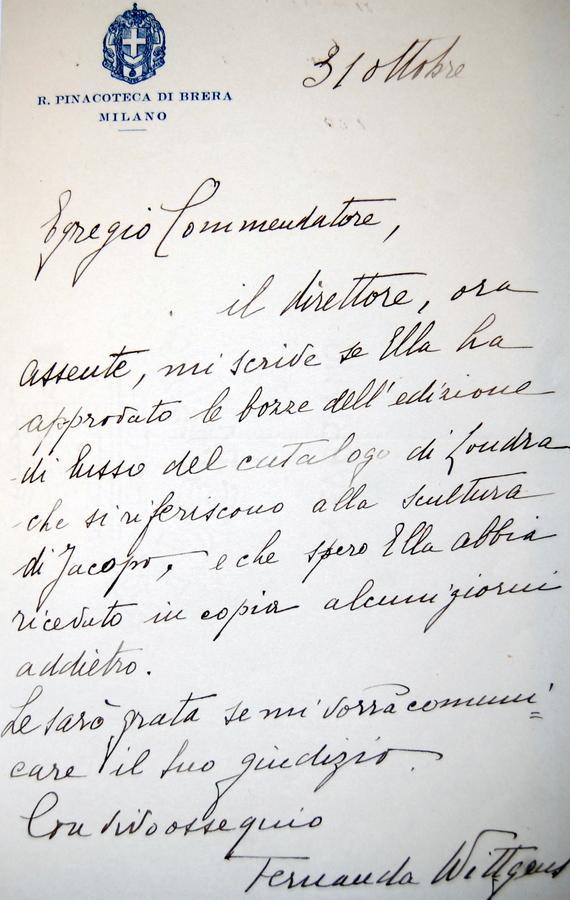 R. PINACOTECA DI BRERA
MILANO
31 ottobre
Egregio Commendatore,
il direttore, ora
assente, mi scrive se Ella ha
approvato le bozze dell'edizione
di lusso del catalogo di Londra
che si riferiscono alla scultura
di Jacopo, e che spero Ella abbia
ricevuto in copia alcuni giorni
addietro.
Le sarò grata se mi vorrà comuni=
care il Suo giudizio.
Con vivo ossequio
Fernanda Wittgens